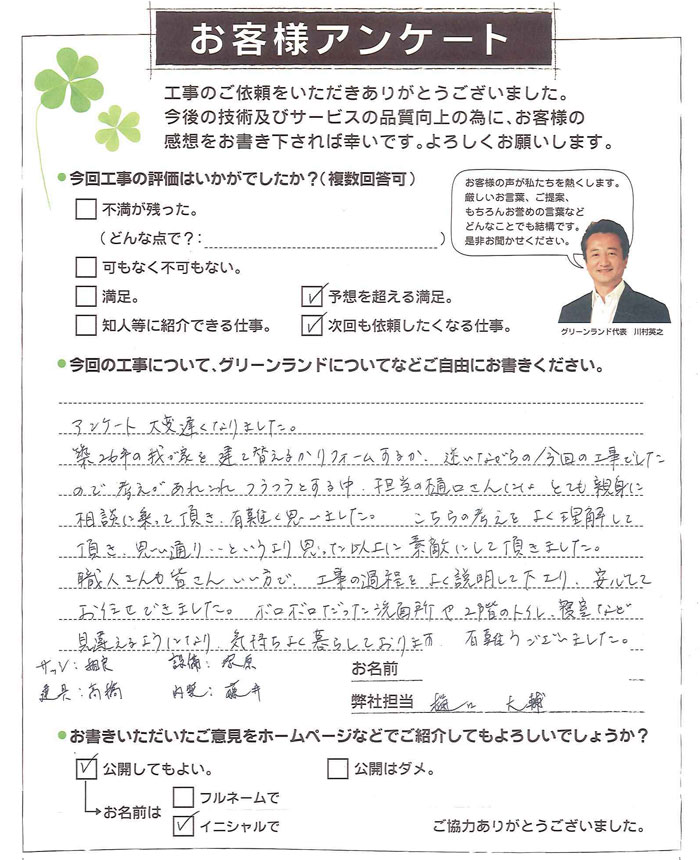 お客様アンケート
工事のご依頼をいただきありがとうございました。
今後の技術及びサービスの品質向上の為に、お客様の
感想をお書き下されば幸いです。よろしくお願いします。
●今回工事の評価はいかがでしたか?(複数回答可)
お客様の声が私たちを熱くします。
厳しいお言葉、ご提案、
もちろんお誉めの言葉など
どんなことでも結構です。
是非お聞かせください。
□ 不満が残った。
(どんな点で?: )
□ 可もなく不可もない。
□ 満足。 ☑ 予想を超える満足。
□ 知人等に紹介できる仕事。 ☑ 次回も依頼したくなる仕事。
グリーンランド代表 川村英之
●今回の工事について、グリーンランドについてなどご自由にお書きください。
アンケート 大変遅くなりました。
築26年の我が家を建て替えるかリフォームするか、迷いながらの今回の工事でした
ので 考えがあれこれ フラフラとする中、担当の樋口さんには とても親身に
相談に乗って頂き、有難く思いました。 こちらの考えを よく理解して
頂き、思い通り・・というより思った以上に 素敵にして頂きました。
職人さんも皆さん いい方で、工事の過程を よく説明して下さり、安心して
お任せできました。 ボロボロだった洗面所や 2階のトイレ、寝室など
見違えるようになり、気持ちよく暮らしております。 有難うございました。
サッシ: 設備:塚原
建具:高橋 内装:藤井
お名前
弊社担当 樋口 大輔
●お書きいただいたご意見をホームページなどでご紹介してもよろしいでしょうか?
☑ 公開してもよい。 □ 公開はダメ。
→お名前は □ フルネームで
☑ イニシャルで
ご協力ありがとうございました。